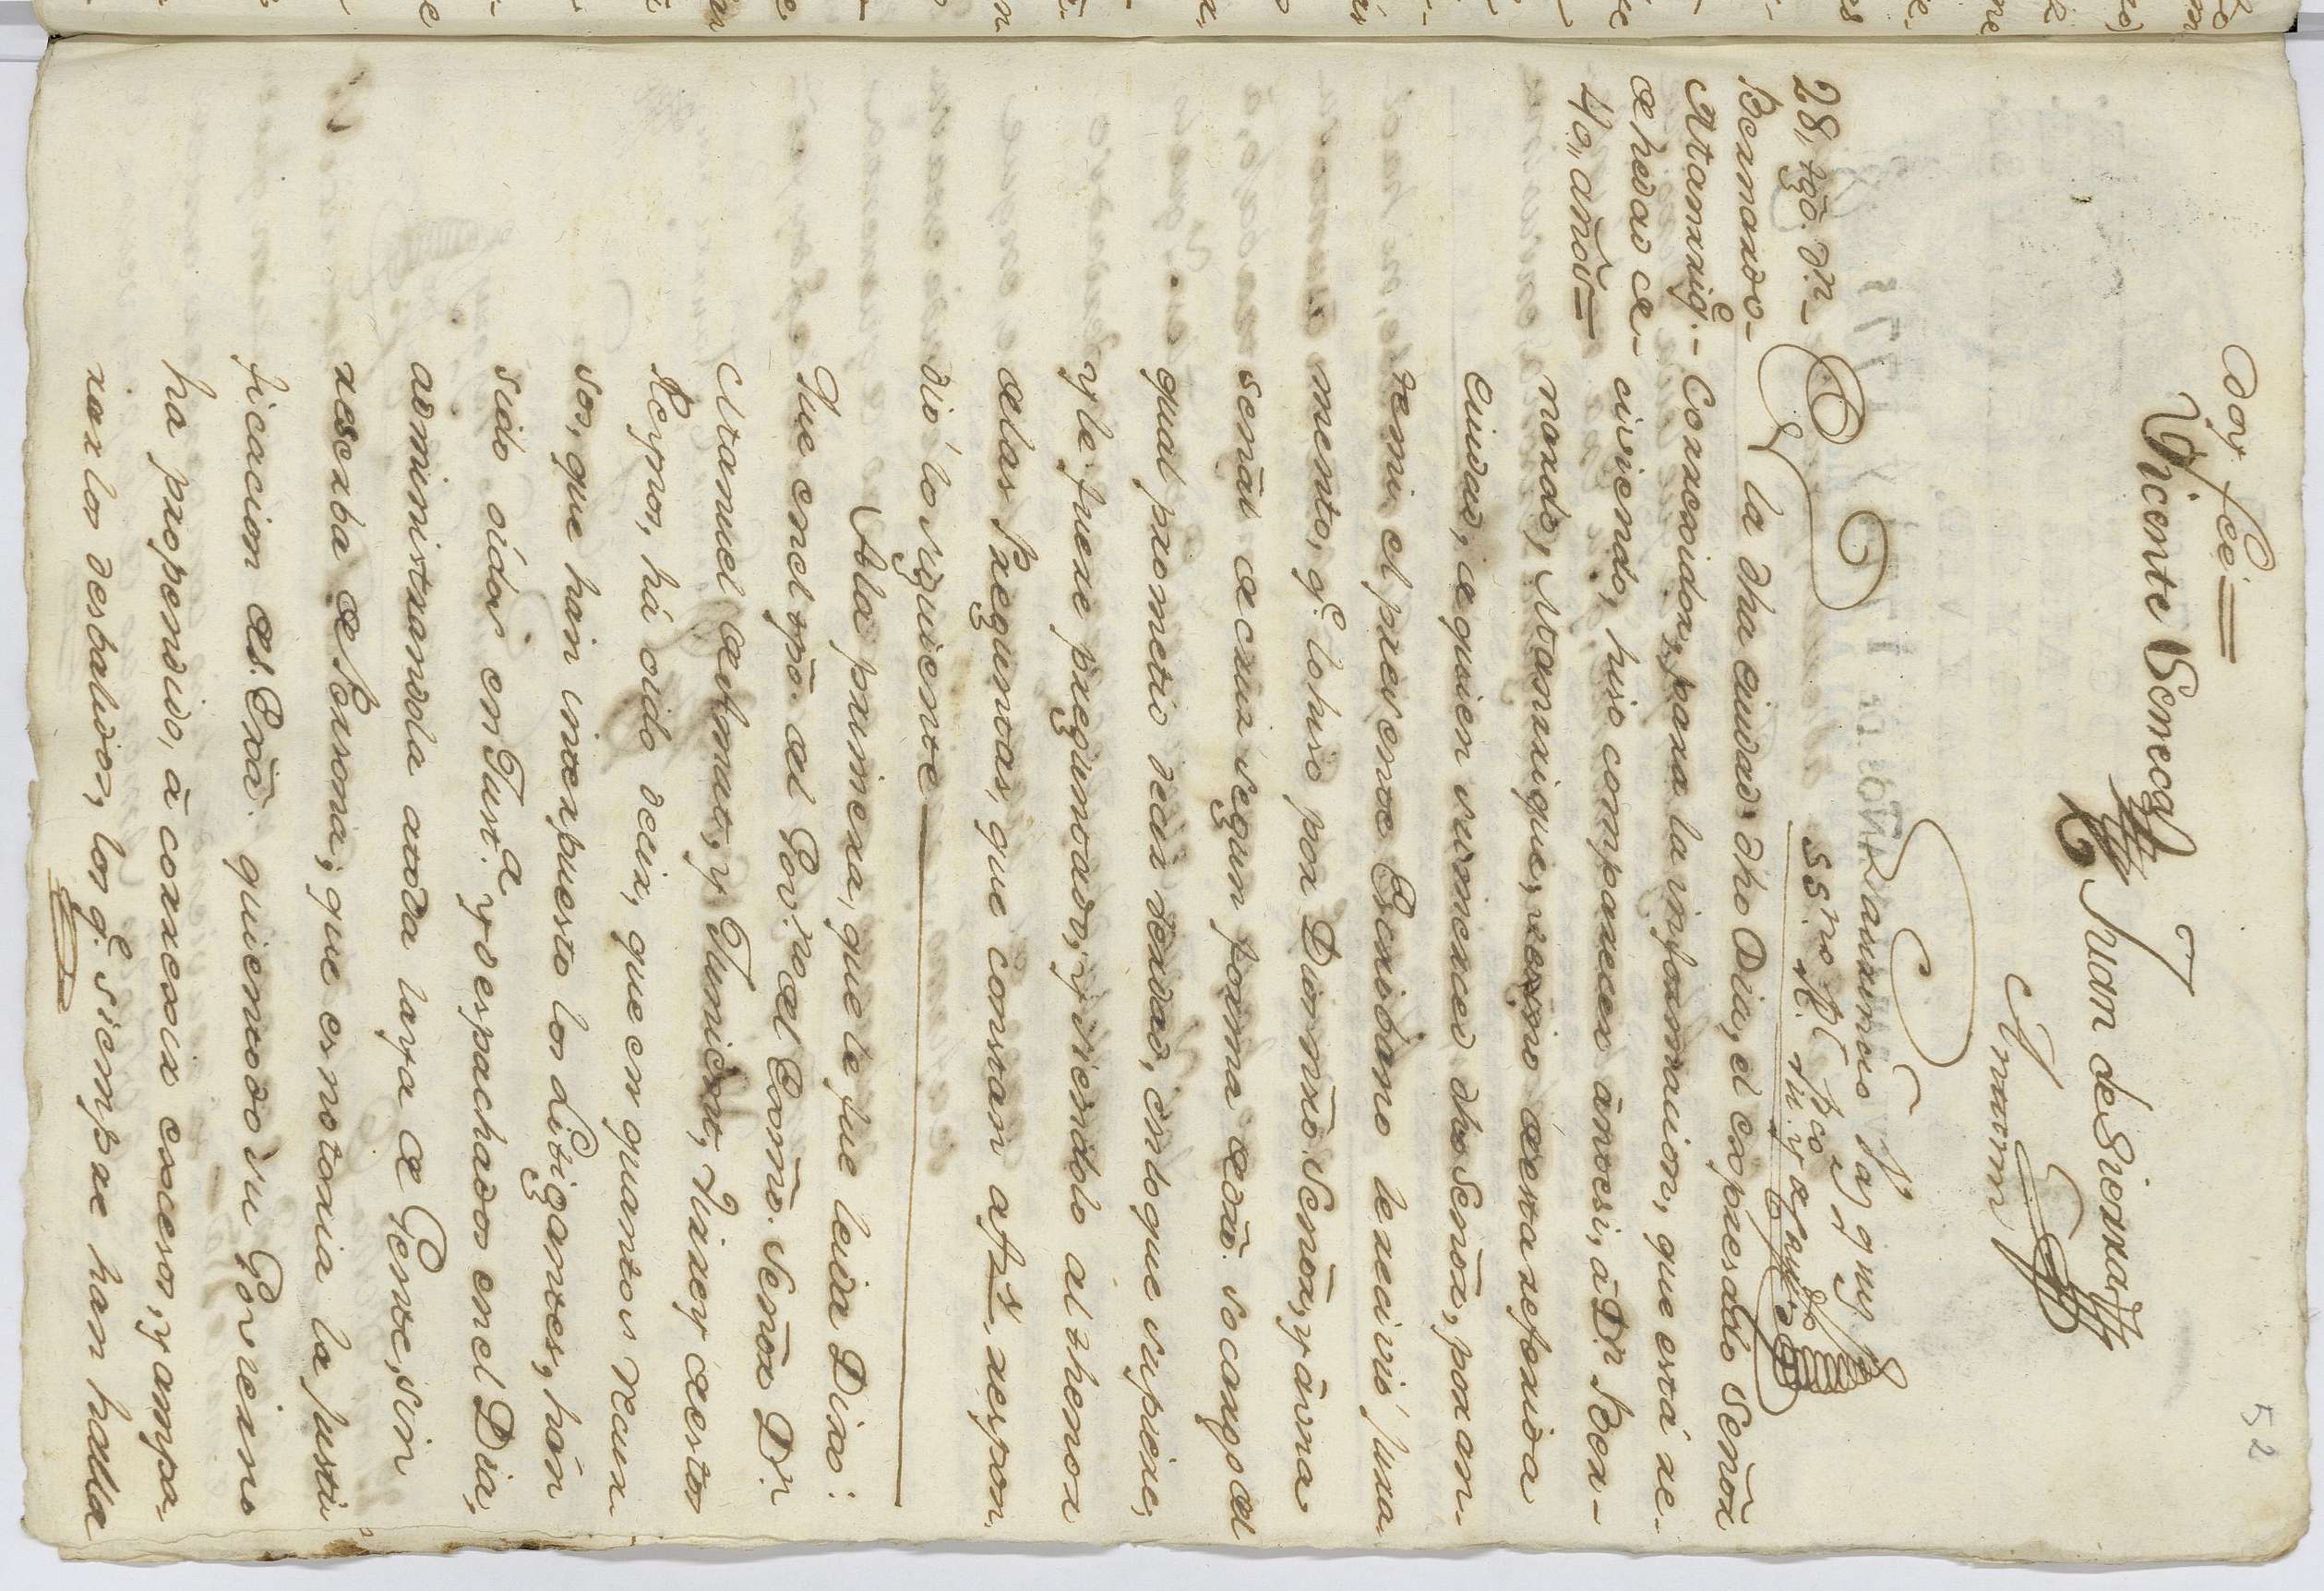 52
doy feé =
Vicente Seneog
Juan de Sierra
Antt.m
ss.no R.l pco
28,, tgõ. Dn.-
Bernardo-
Manrriq.e-
de hedad de-
40,, años=
En la dha ciudad dho Dia, el expresado Señor
Correxidor, para la informacion, que está re-
civiendo, hiso comparecer ante si, a Dn. Ber-
nardo, Manrrique, vezino de esta referida
ciudad, de quien su merced dho Señor, por an-
temi el presente Escribano le recivió jura-
mento, q.e lo hiso por Dios nrõ. Señor, y a una
señal de cruz segun forma de drõ. so cargo del
qual prometio decir verdad, en lo que supiere,
y le fuere preguntado, y siendolo al thenor
de las Preguntas, que constan afs., respon-
dió lo siguiente
A la primera, que le fue leida Dixo:
Que en el tpõ. del Gov.no del Exmõ. Señor Dn.
Manuel de Amat, y Junient, Virrey de estos
Reynos, há oido decir, que en quantos recur-
sos, que hain interpuesto los Litigantes, hán
sido oidos en Just.a y despachados en el Dia,
administrandola a toda laya de Gente, sin
reserba de Persona; que es notoria la justi-
ficacion de s. Exã. quien todo su Govierno
ha propendido, à correxir excesos, y ampa-
rar los desbalidos, los q.e siempre han halla